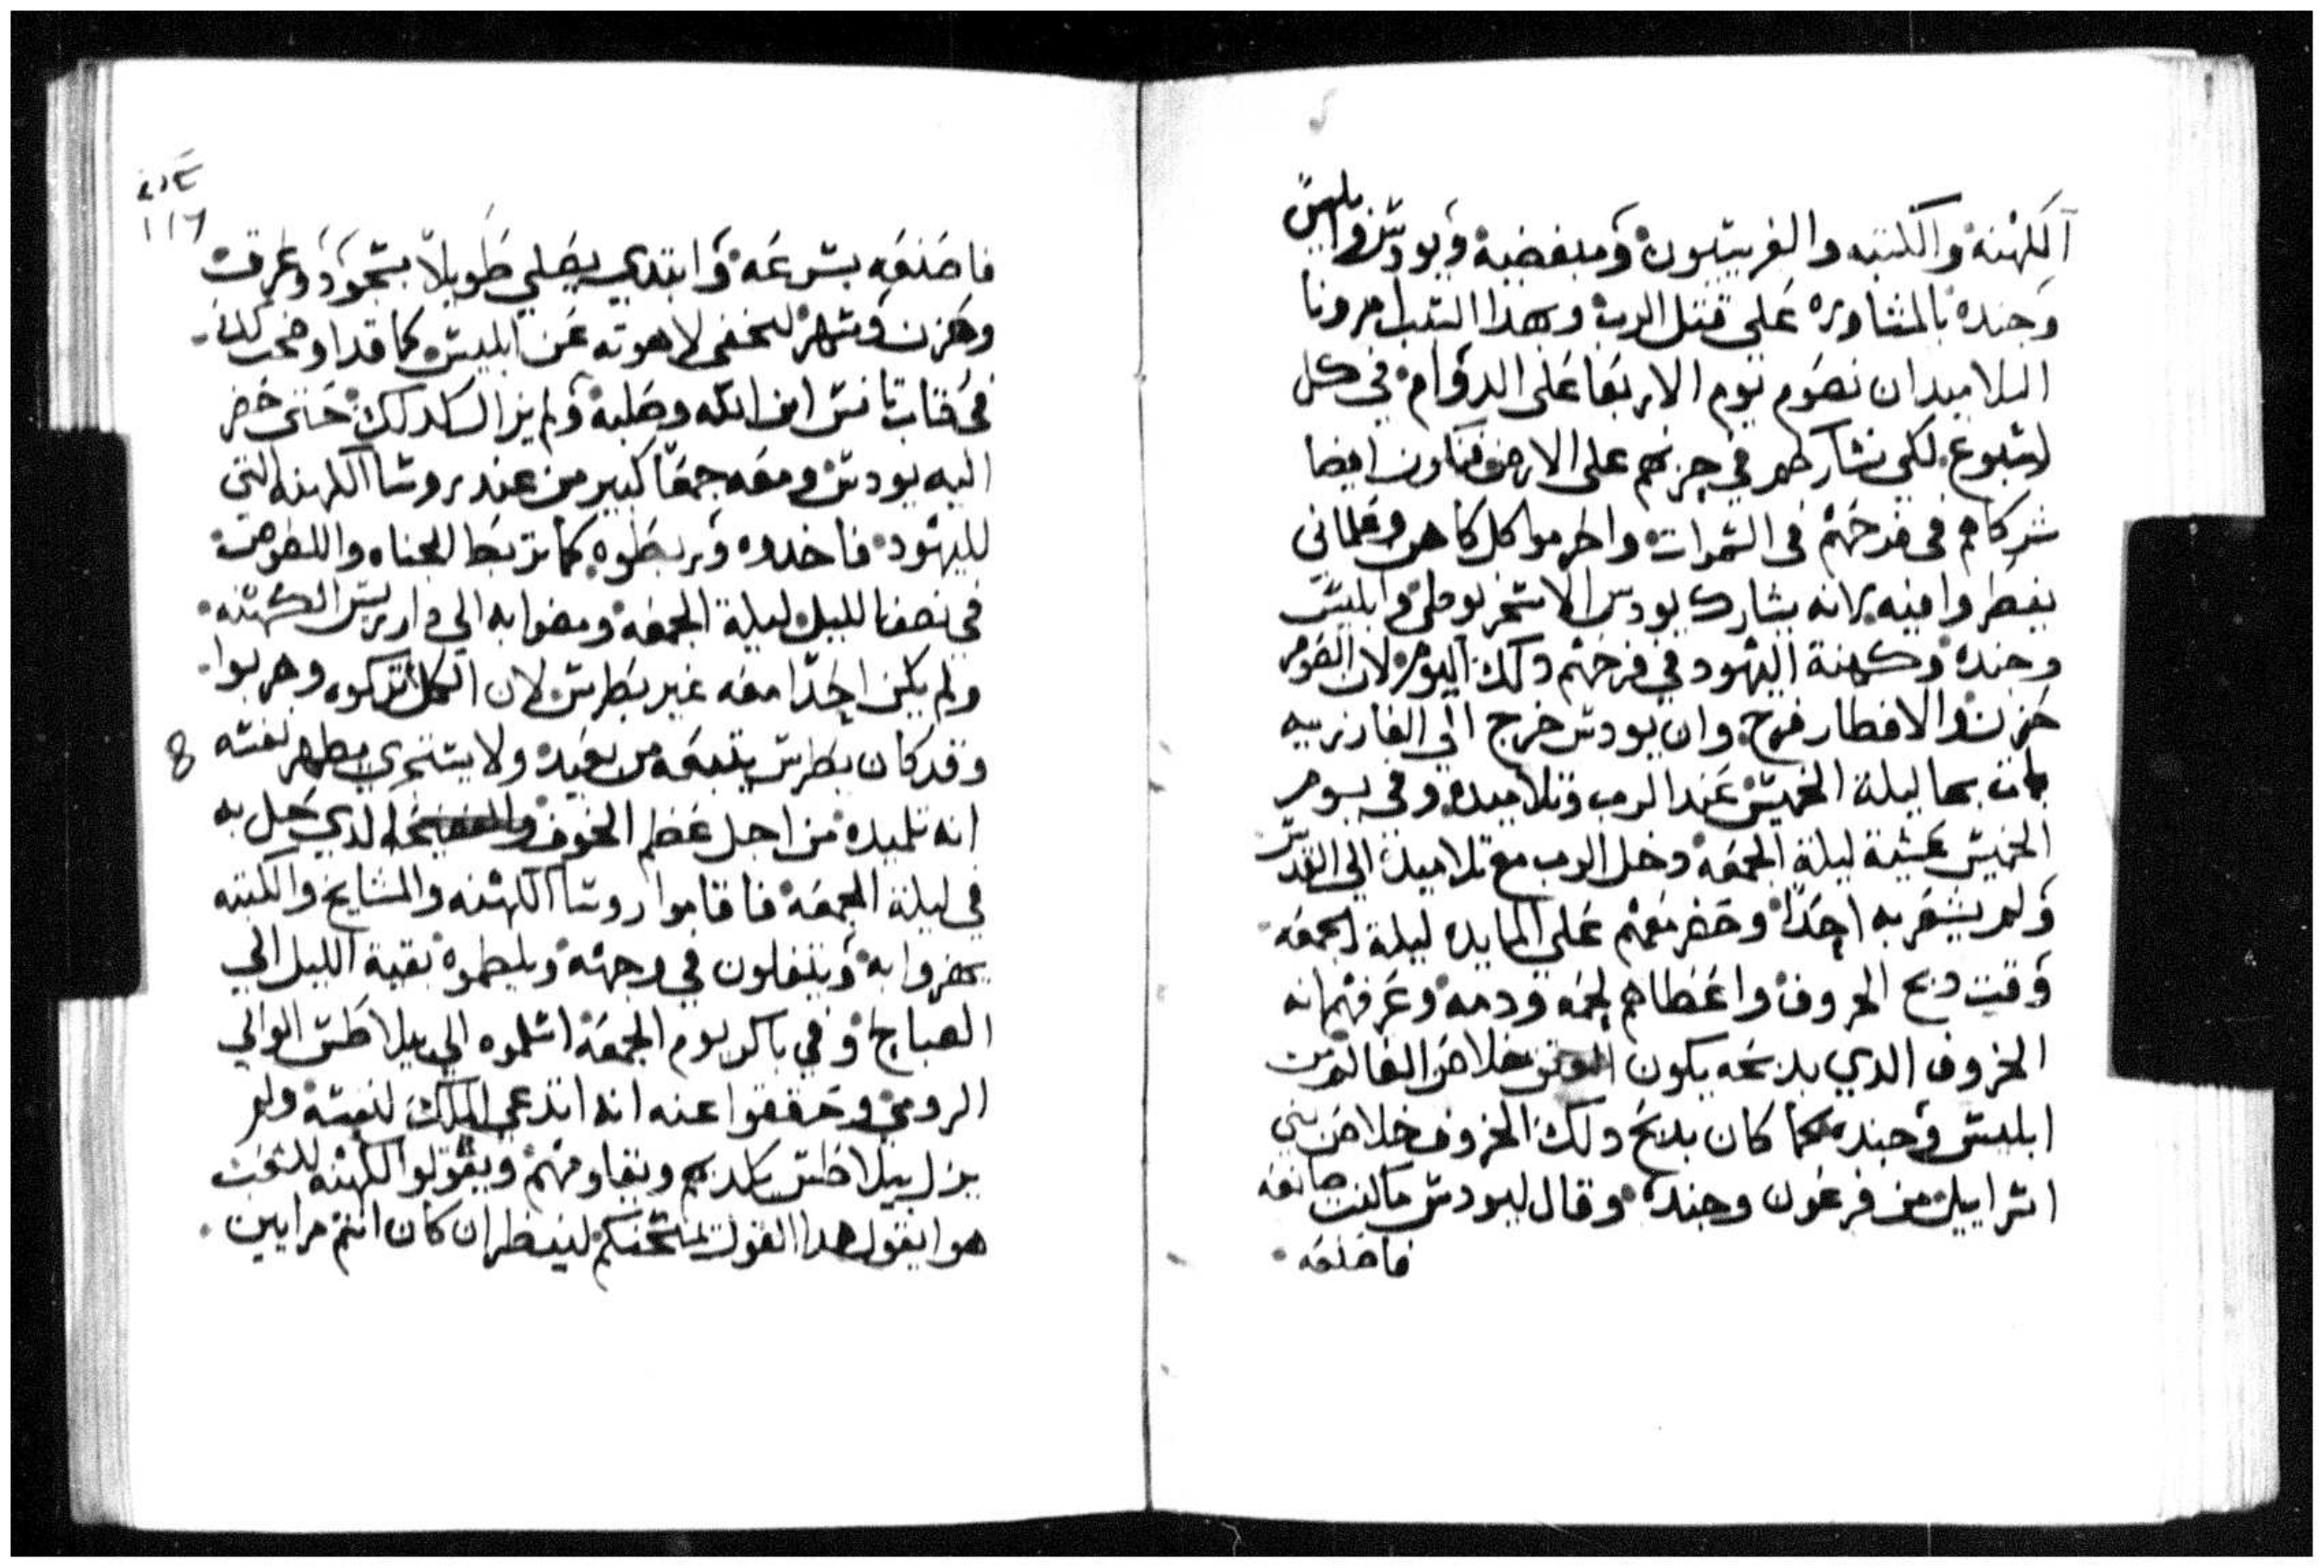 الكهنة والكتبه والفريسيون ومبغضيه ويودس وابليس
وجنده بالمشاوره على قتل الرب وبهدا السبب امرونا
التلاميد ان نصوم يوم الاربعا على الدوام في كل
اسبوع لكي نشاركهم في حزنهم على الارض فنكون ايضا
شركاهم في فرحهم في السموات واحرموا كل كاهن وعلماني
يفطروا فيه لانه يشارك يودس الاسخريوطي وابليس
وجنده وكهنة اليهود في فرحهم دلك اليوم لان الصوم
حزن والافطار فرح وان يودس خرج الي العازريه
بات بها ليلة الخميس عند الرب وتلاميده وفي يوم
الخميس عشية ليلة الجمعه دخل الرب مع تلاميده الي القدس
ولم يشعر به احدا وحضر معهم على المايده ليلة الجمعه
وقت دبح الخروف واعطاهم لحمه ودمه وعرفهم انه
الخروف الدي بدبحه يكون خلاص العالم من
ابليس وجنده كما كان بدبح دلك الخروف خلاص بني
اسراييل من فرعون وجنده وقال ليودس ما كنت صانعه
فاصنعه
ܢܕܟ
١١٦
فاصنعه بسرعه وابتدي يصلي طويلا بسجود وعرق
وحزن وسهر ليخفي لاهوته عن ابليس كما قد اوضحت لك
في كتاب تانس ابن الله وصلبه ولم يزال كدلك حتى حضر
اليه يودس ومعه جمعا كبير من عند روسا الكهنه التي
لليهود فاخدوه وربطوه كما تربط الجناه واللصوص
في نصف الليل ليلة الجمعه ومضوا به الي دار ريس الكهنه
ولم يكن احدا معه غير بطرس لان الكل تركوه وهربوا
وقد كان بطرس يتبعه من بعيد ولا يستجري يظهر نفسه
انه تلميده من اجل عظم الخوف الدي حل به
في ليلة الجمعه فاقاموا روسا الكهنه والمشايخ والكتبه
يهزوا به ويتفلون في وجهه ويلطموه بقية الليل الي
الصباح وفي باكر يوم الجمعه اسلموه الي بيلاطس الوالي
الرومي وحققوا عنه انه ادعي الملك لنفسه ولم
يزل بيلاطس يكدبهم ويقاومهم ويقولوا الكهنه للشعب
هوا يقول هدا القول يمتحنكم لينظر ان كان انتم مرايين